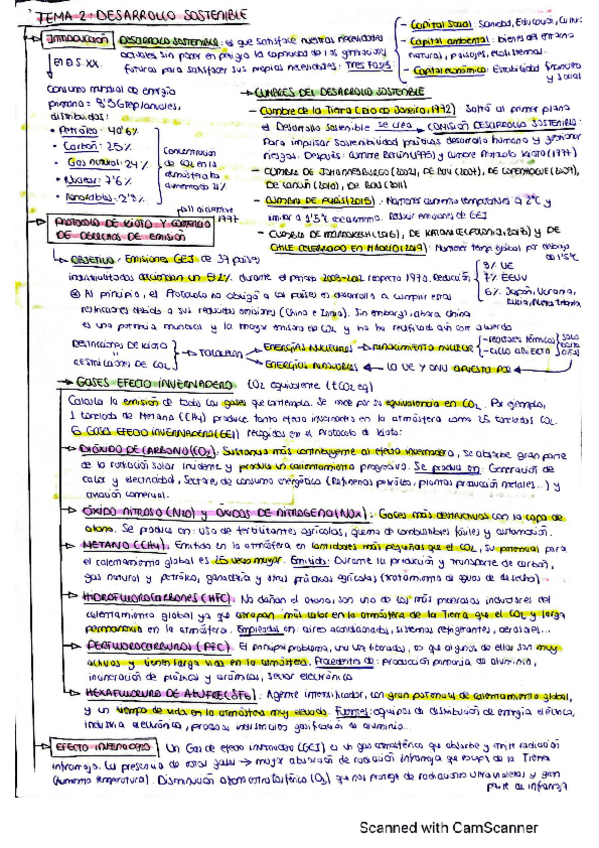 TEMA 2: DESARROLLO SOSTENIBLE
Introducción
DESARROLLO SOSTENIBLE: es que satisface nuestras necesidades
actuales sin poner en peligro la capacidad de las generaciones
futuras para satisfacer sus propias necesidades. TRES FASES
- Capital Social: Sanidad, Educación,
- Capital ambiental: bienes del entorno
natural, paisajes,
- Capital económico: Estabilidad financiera
y social
Consumo mundial de energía
primaria =
distribuidas:
• Petróleo: 40'6%
• Carbón: 25%
• Gas natural: 24%
• Nuclear: 7'6%
• Renovables:
Concentración
de CO2 en la
atmósfera ha
aumentado
→ CUMBRES DEL DESARROLLO SOSTENIBLE
- Cumbre de la Tierra (Río de Janeiro, 1992) Saltó al primer plano
el Desarrollo Sostenible se crea COMISIÓN DESARROLLO SOSTENIBLE:
Para impulsar sostenibilidad políticas desarrollo humano y gestionar
riesgos. Después: Cumbre Berlín (1995) y cumbre Protocolo Kioto (1997)
- CUMBRE DE JOHANNESBURGO (2002), DE BALI (2007), DE COPENHAGUE (2009),
DE CANCÚN (2010), DE
- CUMBRE DE PARÍS (2015): Mantener aumento temperatura a 2°C y
limitar a 1'5°C Reducir emisiones de GEI
- CUMBRE DE MARRAKECH (2016), DE KATOWICE (POLONIA, 2018) Y DE
CHILE CELEBRADO EN MADRID (2019): Mantener temp global por debajo
de 1'5°C
PROTOCOLO DE KIOTO Y COMERCIO
DE DERECHOS DE EMISIÓN
11 diciembre
1997
OBJETIVO: Emisiones GEI de 37 países
industrializados disminuyan un 5'2% durante el periodo 2008-2012 respecto 1990. Reducción
8% UE
7% EEUU
6% Japón, Ucrania,
Al principio, el Protocolo no obligó a los países en desarrollo a cumplir estas
restricciones debido a sus reducidas emisiones (China e India). Sin embargo, ahora China
es una potencia mundial y la mayor emisora de CO2 y no ha ratificado aún con acuerdo
RESTRICCIONES DE KIOTO
RESTRICCIONES DE CO2
→ POTENCIAN
ENERGÍAS NUCLEARES → RENACIMIENTO NUCLEAR
- reactores térmicos
- ciclo abierto
ENERGÍAS RENOVABLES ← LA UE Y ONU APUESTA POR
→ GASES EFECTO INVERNADERO CO2 equivalente (tCO2 eq)
Calcula la emisión de todos los gases que contempla. Se mide por su equivalencia en CO2. Por ejemplo,
1 tonelada de Metano (CH4) produce tanto efecto invernadero en la atmósfera como 25 toneladas CO2.
6 GASES EFECTO INVERNADERO (GEI) recogidos en el Protocolo de Kioto:
DIÓXIDO DE CARBONO (CO2): Sustancia más contribuyente al efecto invernadero, se absorbe gran parte
de la radiación solar incidente y produce un calentamiento progresivo. Se produce en: Generación de
calor y electricidad, Sectores de consumo energético (Refinerías petróleo, plantas producción metales...) y
aviación comercial.
ÓXIDO NITROSO (N2O) y ÓXIDOS DE NITRÓGENO (NOx): Gases más destructivos con la capa de
ozono. Se produce en: uso de fertilizantes agrícolas, quema de combustibles fósiles y automoción.
METANO (CH4): Emitido en la atmósfera en cantidades más pequeñas que el CO2, su potencial para
el calentamiento global es 25 veces mayor. Emitido: Durante la producción y transporte de carbón,
gas natural y petróleo, ganadería y otras prácticas agrícolas (tratamiento de aguas de desecho).
HIDROFLUOROCARBONES (HFC): No dañan el ozono, son uno de los más poderosos inductores del
calentamiento global ya que atrapan más calor en la atmósfera de la Tierra que el CO2 y larga
permanencia en la atmósfera. Empleados en: aires acondicionados, sistemas refrigerantes, aerosoles...
PERFLUOROCARBUROS (PFC): El principal problema, una vez liberados, es que algunos de ellos son muy
activos y tienen larga vida en la atmósfera. Procedentes de: producción primaria de aluminio,
incineración de plásticos y cerámicas, sector electrónica
HEXAFLUORURO DE AZUFRE (SF6): Agente intensificador, con gran potencial de calentamiento global,
y un tiempo de vida en la atmósfera muy elevado. Fuentes: equipos de distribución de energía eléctrica,
industria electrónica, procesos industriales gasificación de aluminio...
EFECTO INVERNADERO Un Gas de efecto invernadero (GEI) es un gas atmosférico que absorbe y emite radiación
infrarroja. La presencia de estos gases → mayor absorción de radiación infrarroja que escapa de la Tierra
(Aumento temperatura). Disminución ozono estratosférico (O3) que nos protege de radiaciones ultravioletas y gran
parte de infrarroja
Scanned with CamScanner